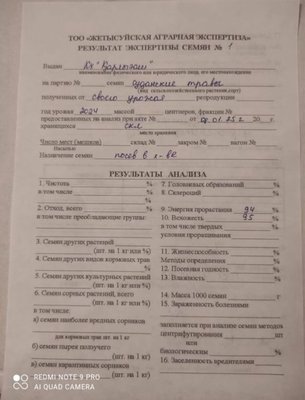 ТОО «ЖЕТЫСУЙСКАЯ АГРАРНАЯ ЭКСПЕРТИЗА»
РЕЗУЛЬТАТ ЭКСПЕРТИЗЫ СЕМЯН № 1
Выдан
наименование физического или юридического лица, его местонахождение
на партию № семян суданские травы
(вид сельскохозяйственного растения, сорт)
полученных от своего урожая репродукции
год урожая 2024 массой центнеров, фракции №
предоставленных на анализ при акте № от 08.01.25 г. 20 г.
хранящихся скл
место хранения
Число мест (мешков) склад № закром № вагон №
Насыпью
Назначение семян посев в х-ве
РЕЗУЛЬТАТЫ АНАЛИЗА
1. Чистота %
%
2. Отход, всего %
в том числе преобладающие группы:
3. Семян других растений
(шт. на 1 кг или %)
4. Семян других видов кормовых трав
%
5. Семян других культурных растений
(шт. на 1 кг или %)
6. Семян сорных растений, всего
(шт. на 1 кг или %)
в том числе:
а) семян наиболее вредных сорняков
для кормовых трав шт. на 1 кг)
б) семян пырея ползучего
(шт. на 1 кг)
в) семян карантинных сорняков
7. Головневых образований %
8. Склероций %
9. Энергия прорастания 94 %
10. Всхожесть 95 %
в том числе твердых %
условия проращивания
11. Жизнеспособность %
Методы определения %
12. Посевная годность %
13. Влажность %
14. Масса 1000 семян г
15. Зараженность болезнями
заполняется при анализе семян методов
центрифугирования шт
или
биологическим %
16. Заселенность вредителями
REDMI NOTE 9 PRO
AI QUAD CAMERA